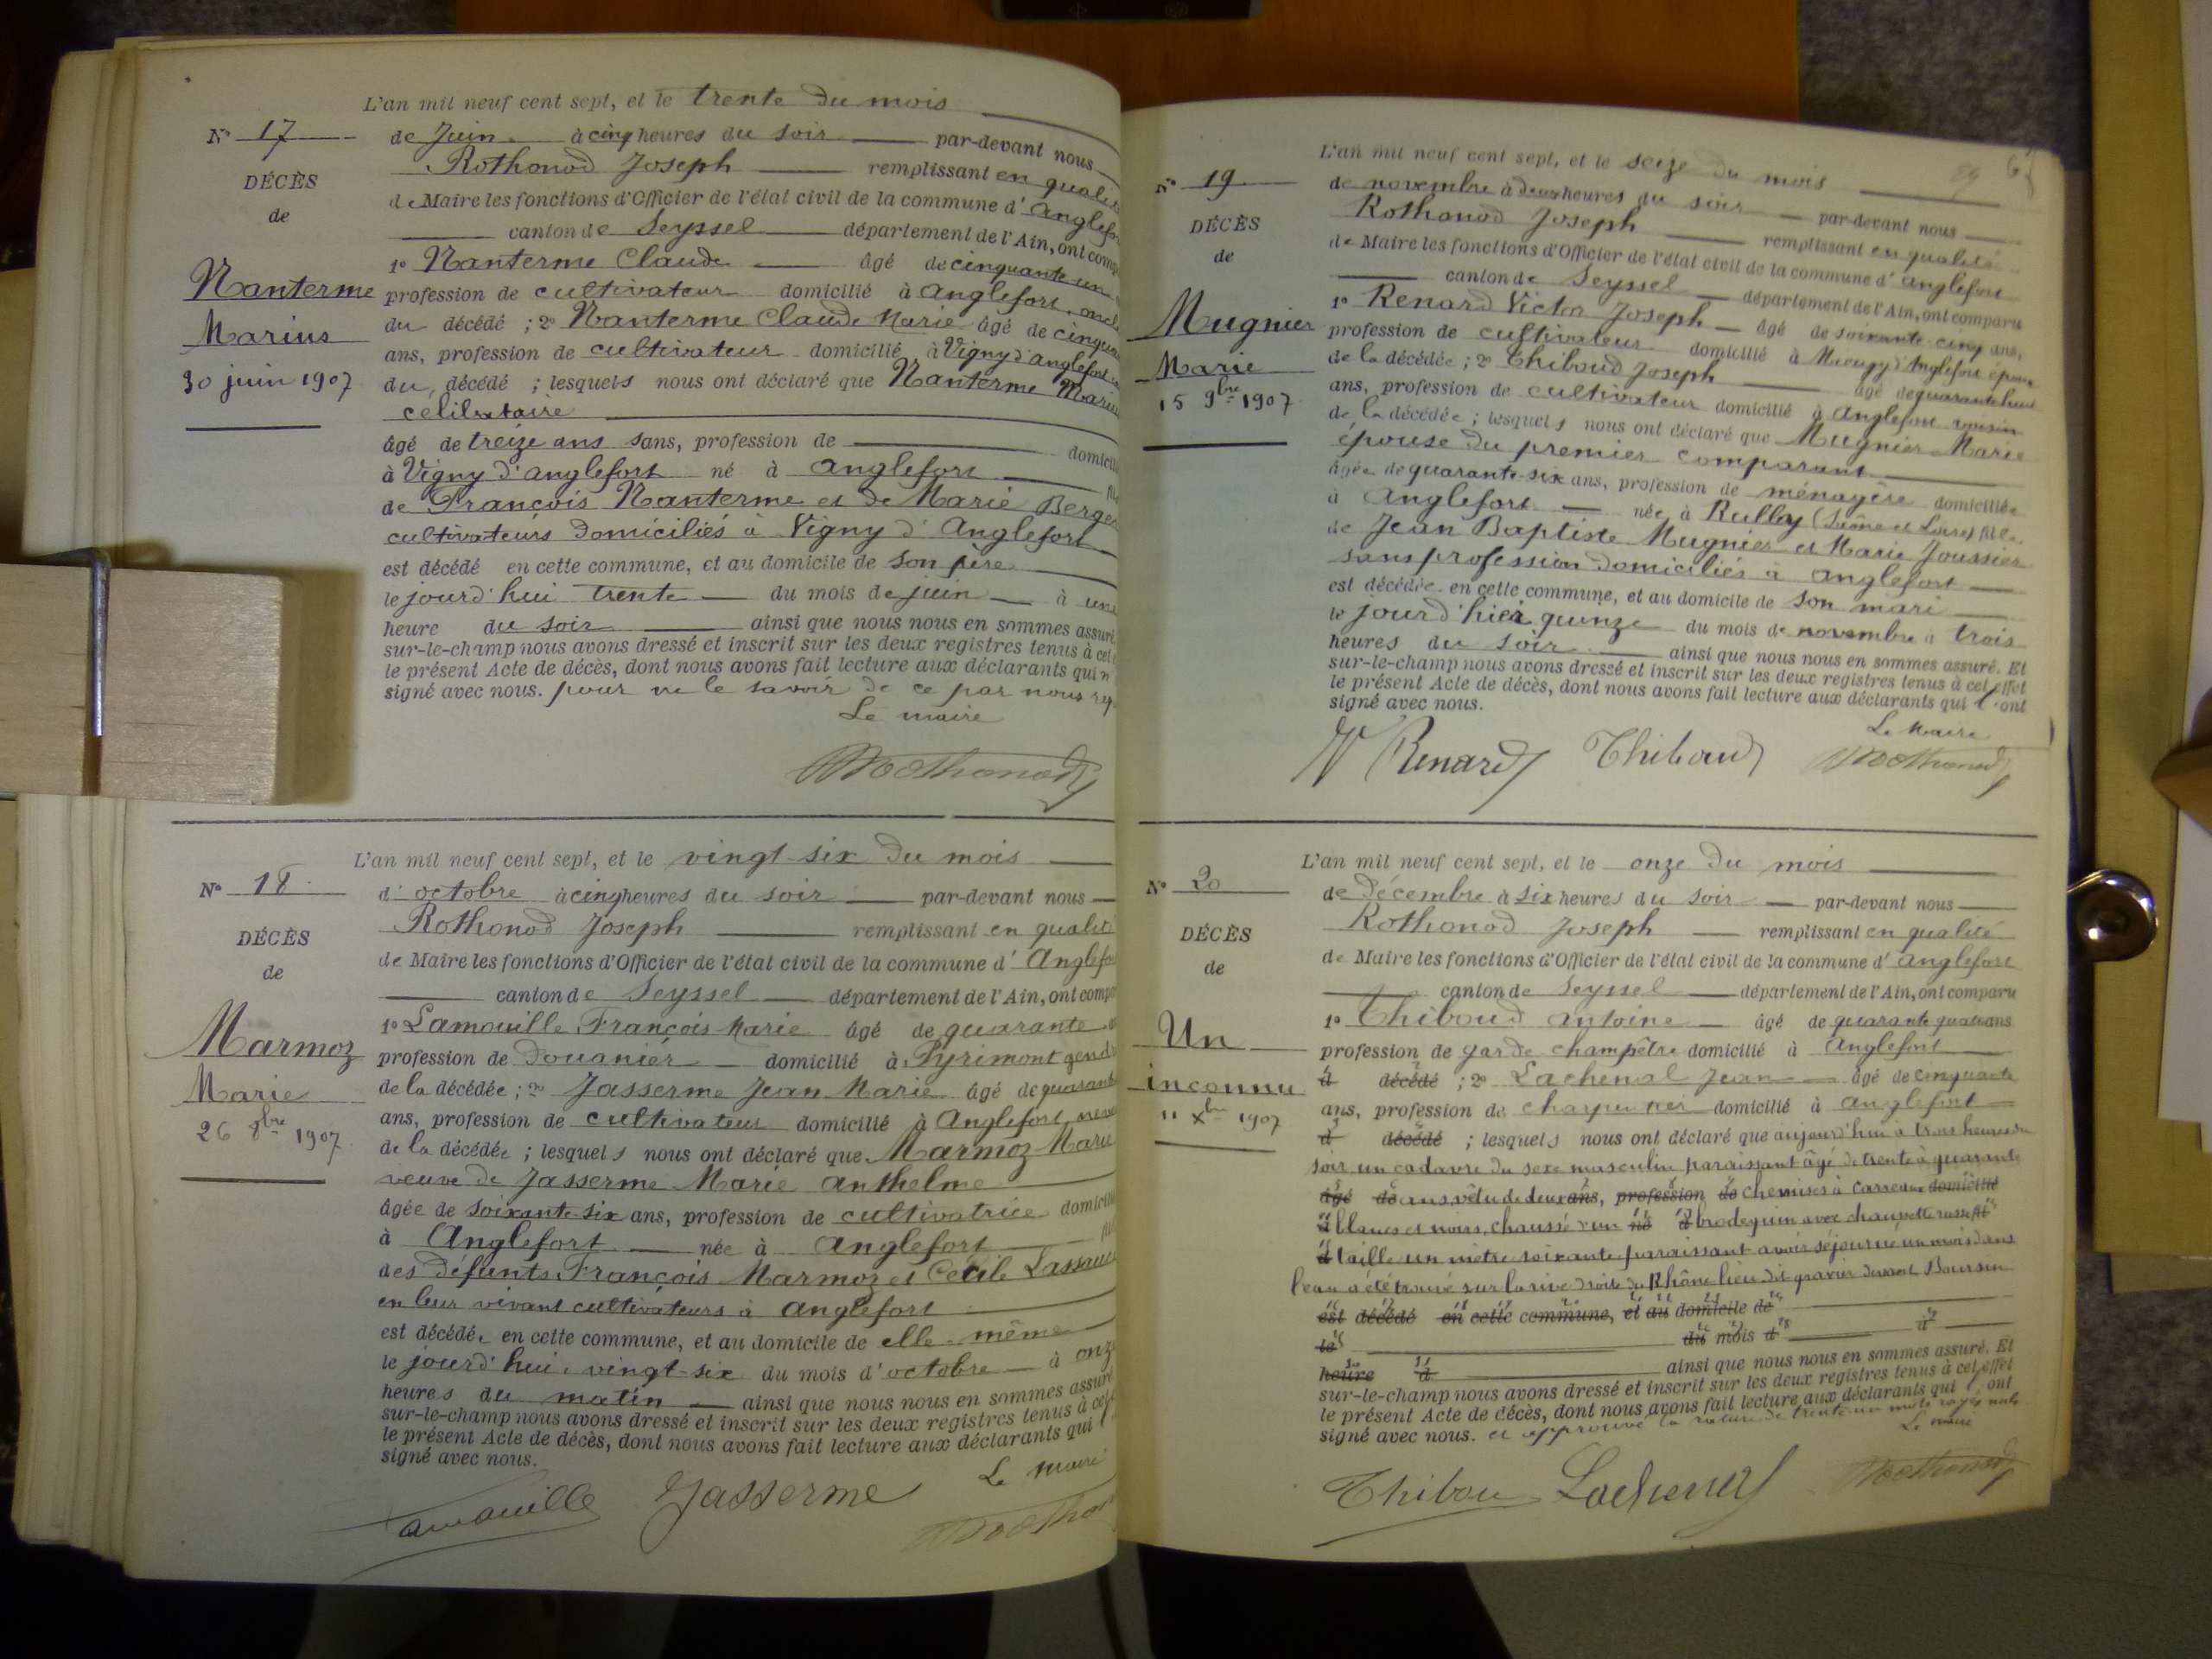 L'an mil neuf cent sept, et le trente du mois
N° 17
de Juin à cinq heures du soir par-devant nous
DÉCÈS
Rothonod Joseph remplissant en qualité
de
de Maire les fonctions d'Officier de l'état civil de la commune d' Anglefor
canton de Seyssel département de l'Ain, ont comp
Nanterme
1° Nanterme Claude âgé de cinquante un
profession de cultivateur domicilié à Anglefort, oncle
Marius
du décédé ; 2° Nanterme Claude Marie âgé de cinquan
30 juin 1907
ans, profession de cultivateur domicilié à Vigny d'anglefort
du décédé ; lesquels nous ont déclaré que Nanterme Marius
célibataire
âgé de treize ans sans, profession de domicili
à Vigny d'anglefort né à anglefort fils
de François Nanterme et de Marie Berger
cultivateurs domiciliés à Vigny d'Anglefort
est décédé en cette commune, et au domicile de son père
le jourd'hui trente du mois de juin à une
heure du soir ainsi que nous nous en sommes assuré
sur-le-champ nous avons dressé et inscrit sur les deux registres tenus à cet e
le présent Acte de décès, dont nous avons fait lecture aux déclarants qui n'
signé avec nous. pour ne le savoir de ce par nous req
Le maire
Rothonod
L'an mil neuf cent sept, et le vingt-six du mois
N° 18
d'octobre à cinq heures du soir par-devant nous
DÉCÈS
Rothonod Joseph remplissant en qualité
de
de Maire les fonctions d'Officier de l'état civil de la commune d' Anglefor
canton de Seyssel département de l'Ain, ont compa
Marmoz
1° Lamouille François Marie âgé de quarante
profession de douanier domicilié à Pyrimont gendre
Marie
de la décédée ; 2° Jasserme Jean Marie âgé de quarante
26 8bre 1907
ans, profession de cultivateur domicilié à Anglefort neveu
de la décédée ; lesquels nous ont déclaré que Marmoz Marie
veuve de Jasserme Marie Anthelme
âgée de soixante-six ans, profession de cultivatrice domicili
à Anglefort née à Anglefort
des défunts François Marmoz et Cécile
en leur vivant cultivateurs à Anglefort
est décédée en cette commune, et au domicile de elle-même
le jourd'hui vingt-six du mois d'octobre à onze
heures du matin ainsi que nous nous en sommes assuré
sur-le-champ nous avons dressé et inscrit sur les deux registres tenus à cet
le présent Acte de décès, dont nous avons fait lecture aux déclarants qui l'
signé avec nous.
Le maire
Lamouille Jasserme Rothonod
L'an mil neuf cent sept, et le seize du mois
89
N° 19
de novembre à deux heures du soir par-devant nous
DÉCÈS
Rothonod Joseph remplissant en qualité
de
de Maire les fonctions d'Officier de l'état civil de la commune d' anglefort
canton de Seyssel département de l'Ain, ont comparu
Mugnier
1° Renard Victor Joseph âgé de soixante-cinq ans,
profession de cultivateur domicilié à d'Anglefort époux
Marie
de la décédée ; 2° Thiboud Joseph âgé de quarante huit
15 9bre 1907
ans, profession de cultivateur domicilié à anglefort voisin
de la décédée ; lesquels nous ont déclaré que Mugnier Marie
épouse du premier comparant
âgée de quarante-six ans, profession de ménagère domiciliée
à Anglefort née à Rully (Saône et Loire) fille
de Jean Baptiste Mugnier et Marie Joussier
sans profession domiciliés à anglefort
est décédée en cette commune, et au domicile de son mari
le jourd'hier quinze du mois de novembre à trois
heures du soir ainsi que nous nous en sommes assuré. Et
sur-le-champ nous avons dressé et inscrit sur les deux registres tenus à cet effet
le présent Acte de décès, dont nous avons fait lecture aux déclarants qui l'ont
signé avec nous.
Le Maire
V Renard Thiboud Rothonod
L'an mil neuf cent sept, et le onze du mois
N° 20
de Décembre à six heures du soir par-devant nous
DÉCÈS
Rothonod Joseph remplissant en qualité
de
de Maire les fonctions d'Officier de l'état civil de la commune d' anglefort
canton de Seyssel département de l'Ain, ont comparu
Un
1° Thiboud Antoine âgé de quarante quatre ans
profession de garde champêtre domicilié à Anglefort
inconnu
d décédé ; 2° Lachenal Jean âgé de cinquante
11 Xbre 1907
ans, profession de charpentier domicilié à anglefort
d décédé ; lesquels nous ont déclaré que aujourd'hui à trois heures du
soir un cadavre du sexe masculin paraissant âgé de trente à quarante
âgé de ans vêtu de deux ans, profession de chemises à carreaux domicilié
à blancs et noirs, chaussé d'un né à brodequin avec chaussette russe fil
d taille un mètre soixante paraissant avoir séjourné un mois dans
l'eau a été trouvé sur la rive droite du Rhône lieu dit gravier devant Boursin
est décédé en cette commune, et au domicile de
le du mois d à
heure d ainsi que nous nous en sommes assuré. Et
sur-le-champ nous avons dressé et inscrit sur les deux registres tenus à cet effet
le présent Acte de décès, dont nous avons fait lecture aux déclarants qui l'ont
signé avec nous. et approuvé la rature de trente un mots rayés nuls
Le maire
Thibou Lachenal Rothonod